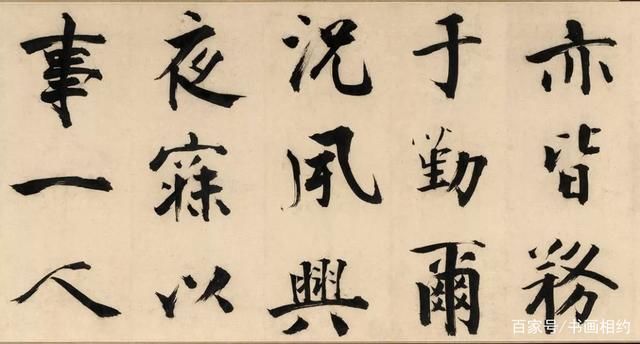 亦皆務
于勤爾
況夙興
夜寐以
事一人
百家号/书画相约